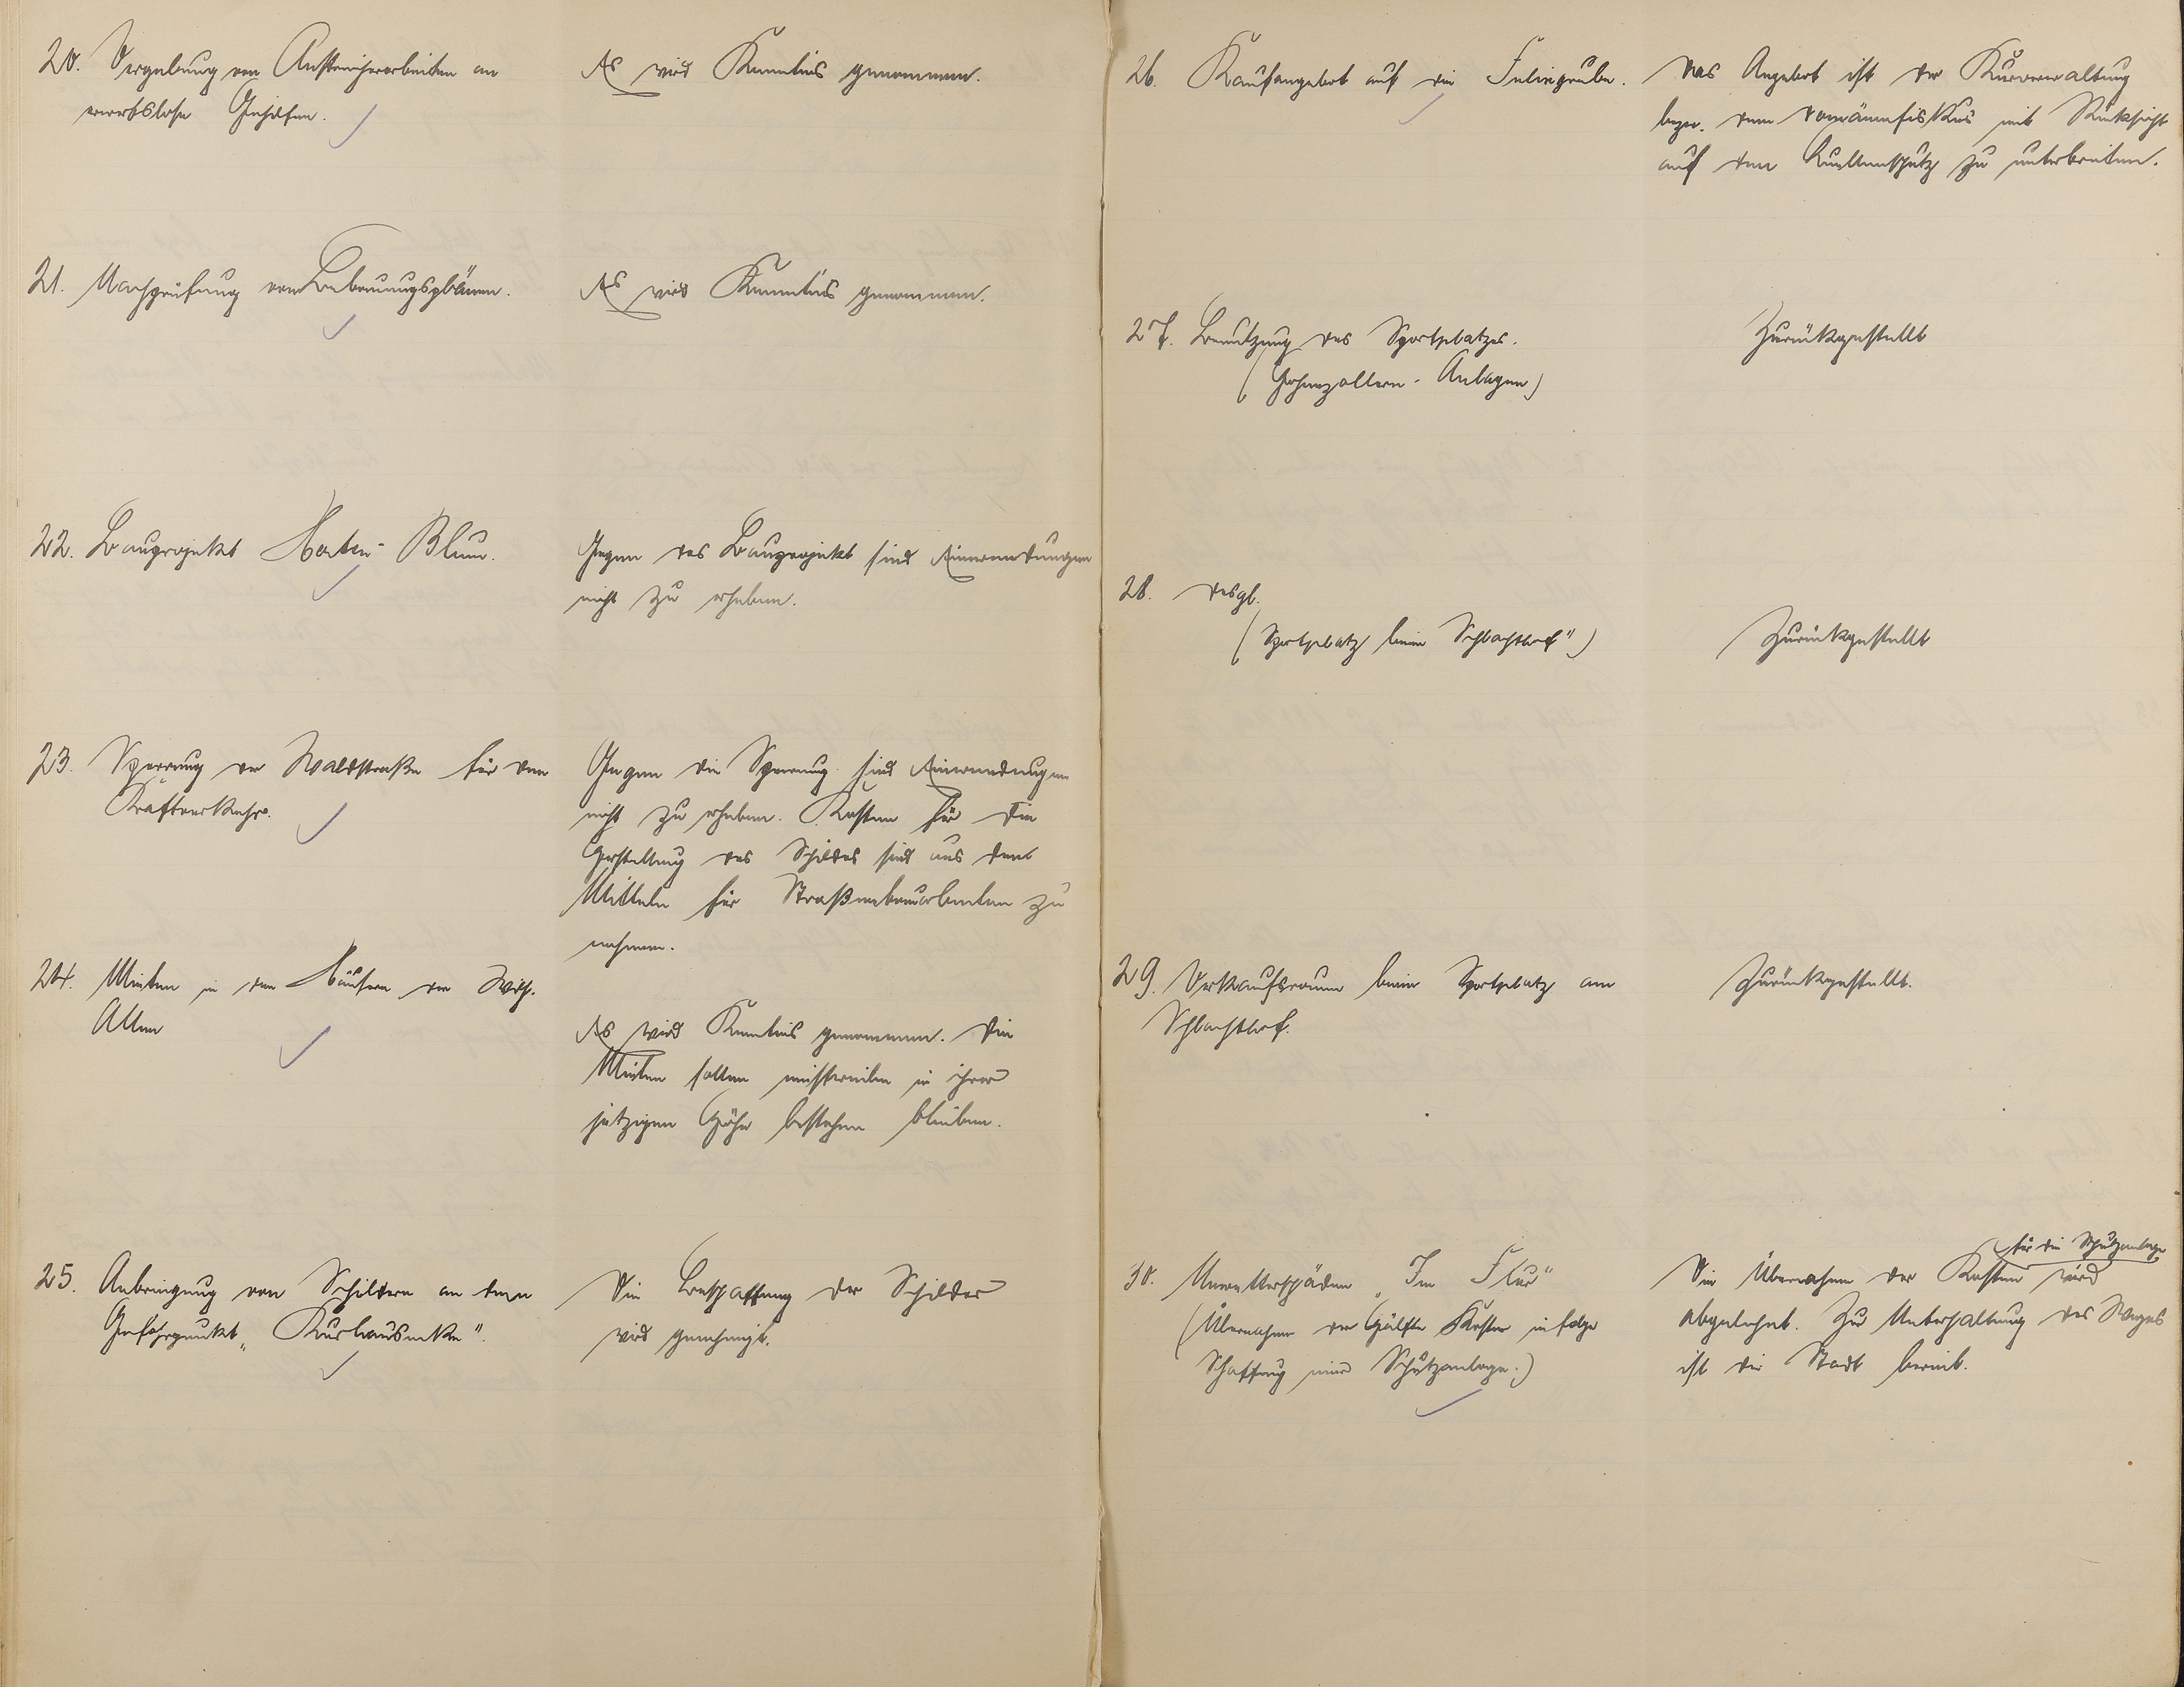 20. Vergebung von Anstreicherarbeiten an
erwerbslose Gehilfen.
Es wird Kenntnis genommen.
21. Nachprüfung von Bebauungsplänen.
Es wird Kenntnis genommen.
22. Bauprojekt Blum.
Gegen das Bauprojekt sind Einwendungen
nicht zu erheben.
23. Sperrung der Waldstraße für den
Kraftverkehr.
Gegen die Sperrung sind Einwendungen
nicht zu erheben. Kosten für die
Herstellung des Schildes sind aus den
Mitteln für Straßenbauarbeiten zu
nehmen.
24. Mieten in den Häusern der Wilh.
Allee
Es wird Kenntnis genommen. Die
Mieten sollen einstweilen in ihrer
jetzigen Höhe bestehen bleiben.
25. Anbringung von Schildern an dem
Gefahrpunkt „Kurhausecke".
Die Beschaffung der Schilder
wird genehmigt.
26. Kaufangebot auf die
Das Angebot ist der Kurverwaltung
bezw. dem Domänenfiskus mit Rücksicht
auf den Quellenschutz zu unterbreiten.
27. Benutzung des Sportplatzes.
(Hohenzollern-Anlagen)
Zurückgestellt
28. desgl.
(Sportplatz beim Schlachthof")
Zurückgestellt
29. Verkaufsraum beim Sportplatz am
Schlachthof.
Zurückgestellt.
30. Unwetterschäden „Im Flur"
(Übernahme der Hälfte Kosten infolge
Schaffung einer Schutzanlage.)
für die Schutzanlage
Die Übernahme der Kosten wird
abgelehnt. Zu Unterhaltung des Weges
ist die Stadt bereit.